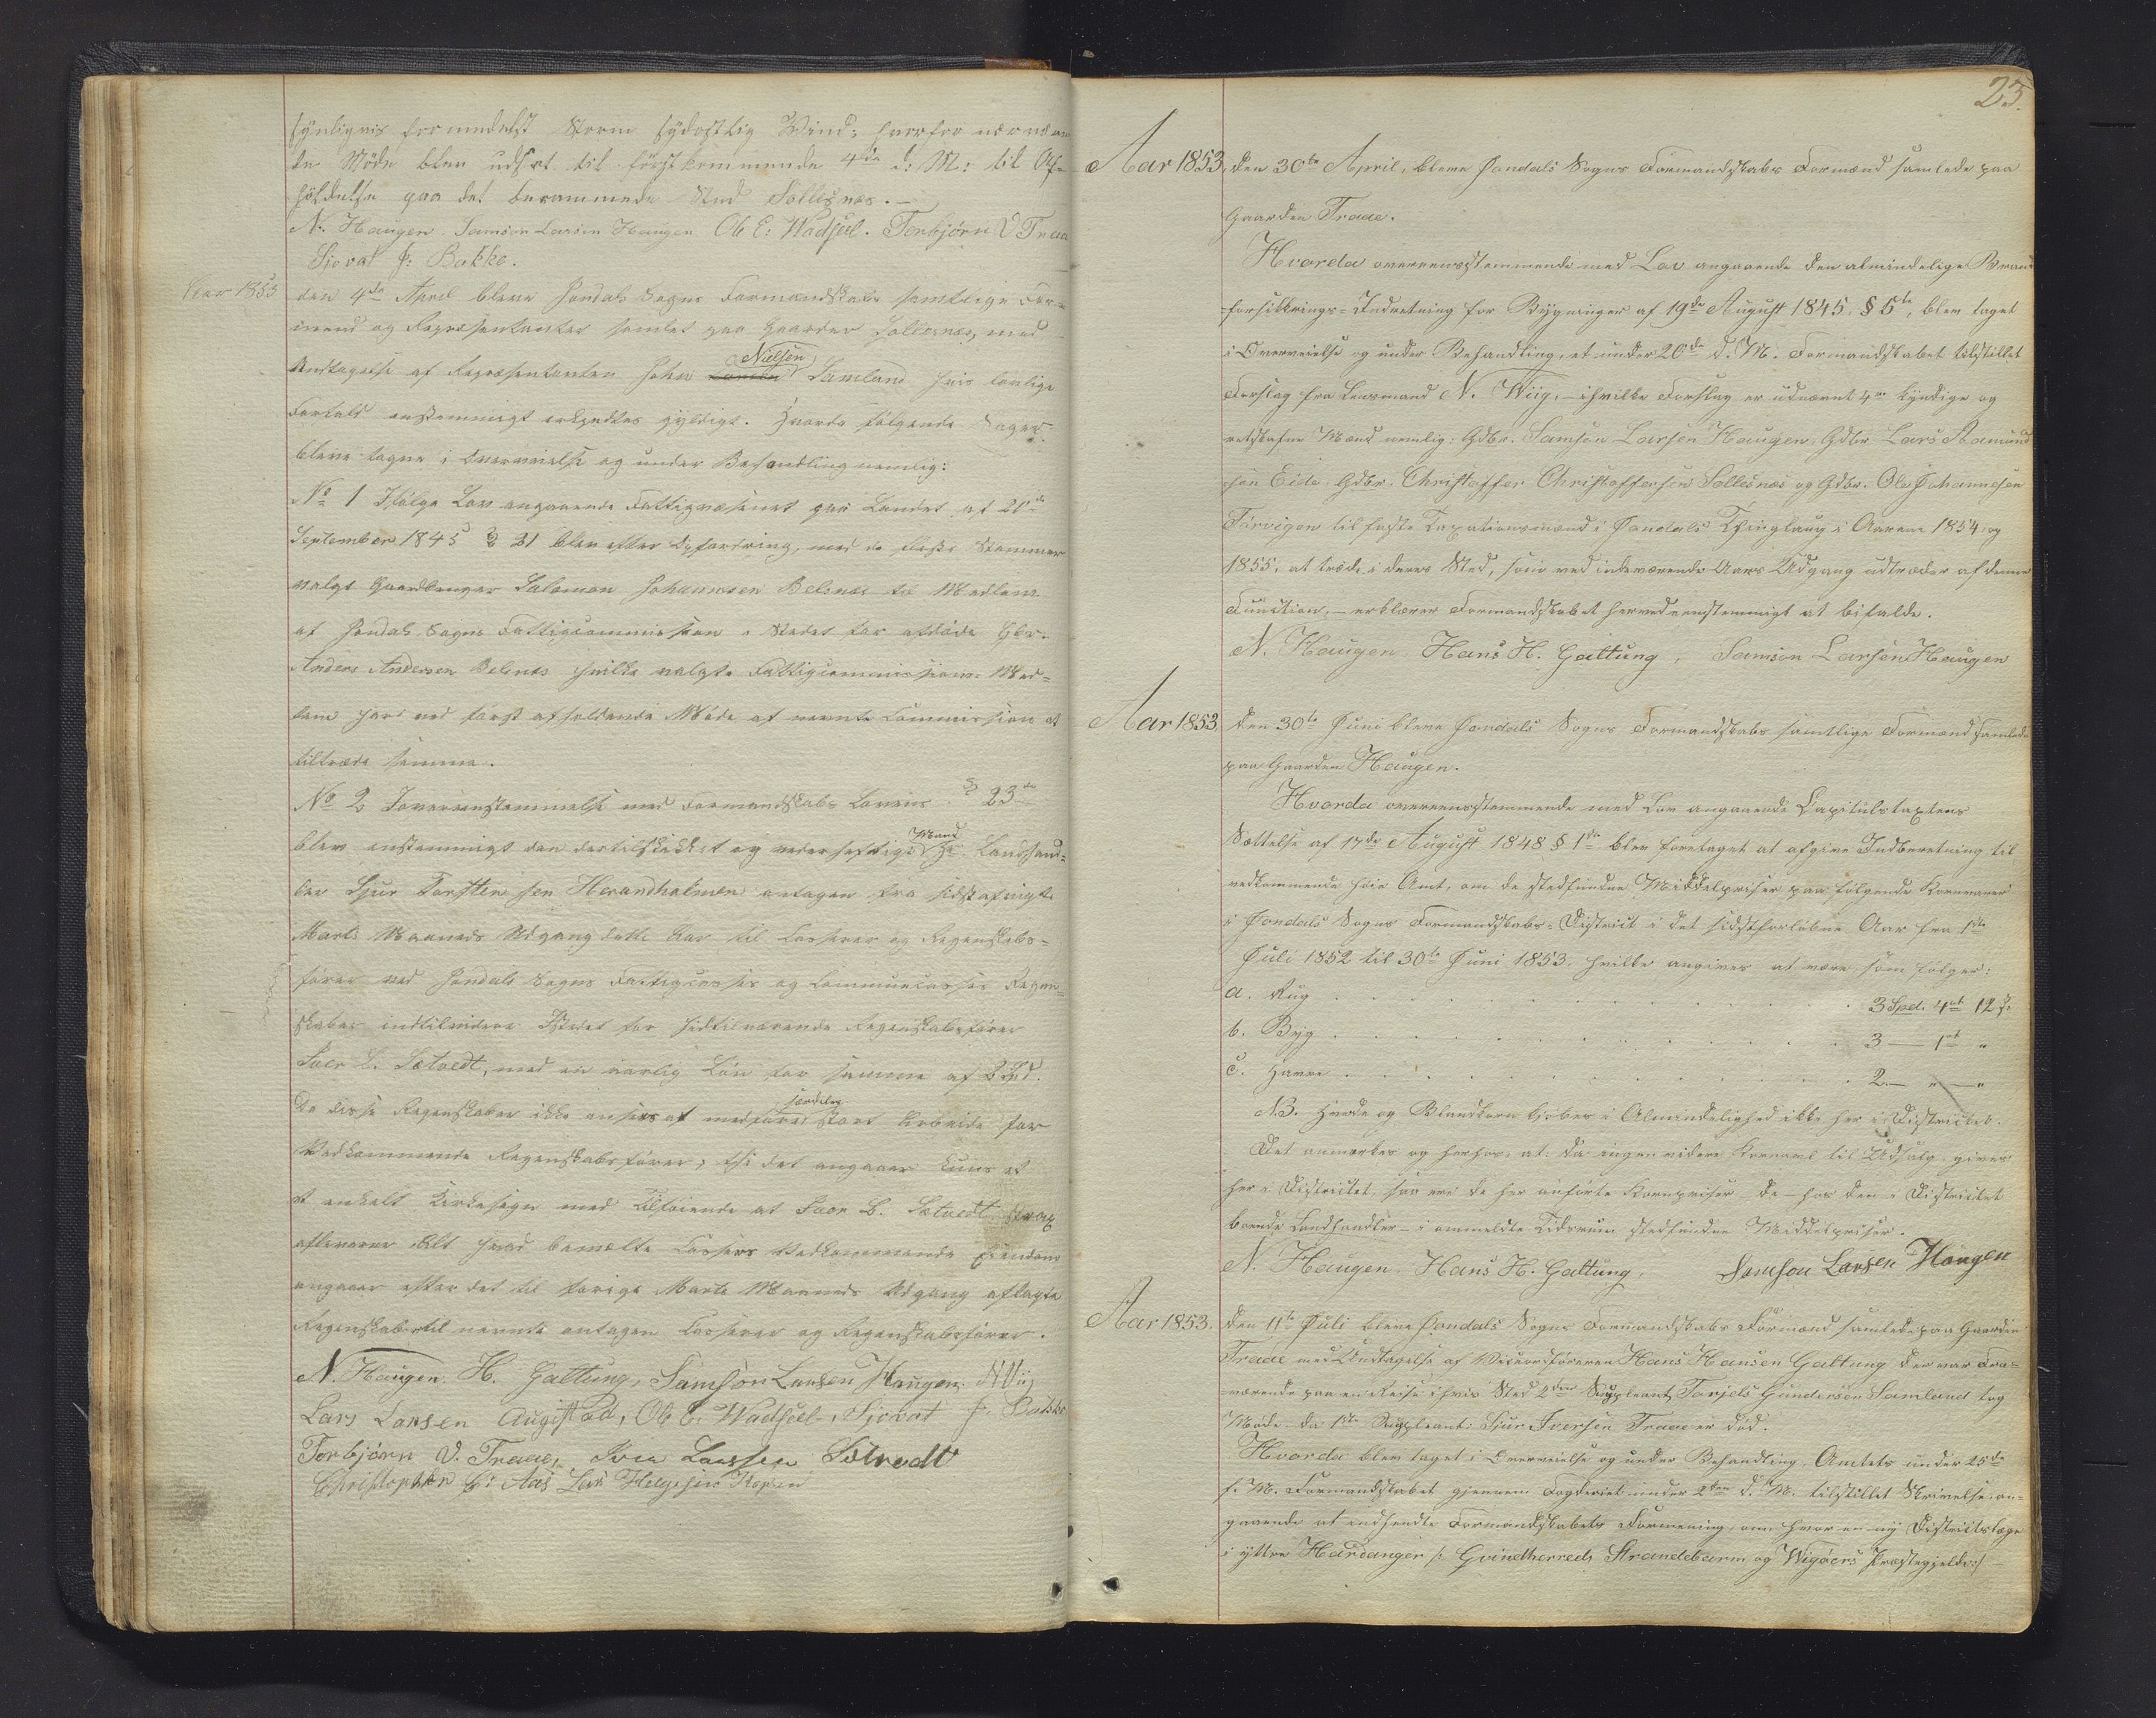 synligvis formedelst Storm sydostlig Wind: hvorfor
te Møde blev udsat til førstkommende 4de d: M: til Af-
holdelse paa det berammede Sted Sollesnæs.-
N. Haugen. Samson Larsen Haugen Ole E. Wadsel. Torbjørn D Traae
Sjovat J: Bakke.
Aar 1853
den 4de April bleve Jondals Sogns Formandskabs samtlige For-
mænd og Repræsentanter samlet paa Gaarden Sollesnæs, med
Undtagelse af Repræsentanten John Nielsen Samland hvis lovlige
Forfald enstemmigt erkjendtes gyldigt. Hvorda følgende Sager
bleve tagne i Overveielse og under Behandling nemlig:
No 1 Ifølge Lov angaaende Fattigvæsenet paa Landet af 20de
September 1845 § 31 blev efter Opfordring, med de fleste Stemmer
valgt Gaardbruger Salomon Johannesen Belsnæs til Medlem
af Jondals Sogns Fattigcommission i Stedet for afdøde Gbr.
Anders Andersen Belsnæs hvilke valgte Fattigcommissions Med-
lem har ved først afholdende Møde af nevnte Commission at
tiltræde samme.
No 2 I overeenstemmelse med Formandskabs Lovens § 23de
blev enstemmigt den dertil skikket og vederheftige Mand Hr. Landhand-
ler Sjur Torstensen Herandholmen antagen fra sidstafvigte
Marts Maaneds Udgang dette Aar til Casserer og Regnskabs-
fører ved Jondals Sogns Fattigcasses og Communecasses Regn-
skaber indtilvidere Istedet for hidtilværende Regnskabsfører
Iver L. Sætvedt, med en aarlig Løn for samme af 3 Spd.
da disse Regnskaber ikke ansees at medføre særdeles stort Arbeide for
Vedkommende Regnskabsfører; thi det angaaer kuns et
et enkelt Kirkesogn med Tilføiende at Iver L. Sætvedt strax
afleverer Alt hvad bemeldte Cassers Vedkommende Eiendom
angaaer efter det til forige Marts Maaneds Udgang aflagte
Regnskaber til nevnte antagen Casserer og Regnskabsfører.
N. Haugen. H. Galtung, Samson Larsen Haugen. N Wiig
Lars Larsen Augestad, Ole E. Wadsel, Sjovat J. Bakke
Torbjørn D. Traae, Iver Larssen Sætvedt
Christopher C: Aas Lars Helgesen Kopen
23.
Aar 1853, den 30te April, bleve Jondals Sogns Formandskabs Formænd samlede paa
Gaarden Traae.
Hvorda overeensstemmende med Lov angaaende den almindelige Brand-
forsikrings-Indretning for Bygninger af 19de August 1845, § 5te, blev taget
i Overveielse og under Behandling, et under 20de d. M. Formandskabet tilstillet
Forslag fra Lensmand N. Wiig, - ihvilke Forslag er udnævnt 4re kyndige og
retskafne Mænd nemlig: Gdbr. Samson Larsen Haugen, Gdbr. Lars Aamund-
sen Eide, Gdbr. Christoffer Christoffersen Sollisnæs og Gdbr. Ole Johannesen
Torvigen til faste Taxationsmænd i Jondals Thinglaug i Aarene 1854 og
1855, at træde i deres Sted, som ved indeværende Aars Udgang udtræder af denne
Function, - erklærer Formandskabet herved eenstemmigt at bifalde.
N. Haugen Hans H. Galtung, Samson Larsen Haugen
Aar 1853, den 30te Juni bleve Jondals Sogns Formandskabs samtlige Formænd samlede
paa Gaarden Haugen.
Hvorda overeensstemmende med Lov angaaende Capitulstaxtens
Sættelse af 17de August 1848 § 1ste blev foretaget at afgive Indberetning til
vedkommende høie Amt, om de stedfundne Middelpriser paa følgende Kornvarer
i Jondals Sogns Formandskabs-District i det sidstforløbne Aar fra 1ste
Juli 1852 til 30te Juni 1853, hvilke angives at være som følger:
a. Rug . . . 3 Spd. 4ort 12 s.
b. Byg . . . 3 — 1ort "
c. Havre . . . 2 — " — "
NB. Hvede og Blandkorn kjøbes i Almindelighed ikke her i Districtet.
Det anmerkes og herhos, at: da ingen videre Kornavl til Udsalg gives
her i Districtet, saa ere de her anførte Kornpriser de - hos den i Districtet
boende Landhandler - i ommeldte Tidsrum stedfundne Middelpriser.
N. Haugen. Hans H. Galtung, Samson Larsen Haugen
Aar 1853. den 11te Juli bleve Jondals Sogns Formandskabs Formænd samlede paa Gaarden
Traae med Undtagelse af Viceordføreren Hans Hansen Galtung der var Fra-
værende paa en Reise i hvis Sted 2den Suppleant, Torjels Gundersen Samland tog
Møde - da 1ste Suppleant: Sjur Iversen Traae er død.
Hvorda blev taget i Overveielse og under Behandling, Amtets under 25de
f. M. Formandskabet gjennem Fogderiet under 2den d. M. tilstillet Skrivelse an-
gaaende at indhendte Formandskabets Formening, om hvor en ny Districtslæge
i yttre Hardanger /: Qvindherreds Strandebarm og Wigøers Præstegjelde :/ —